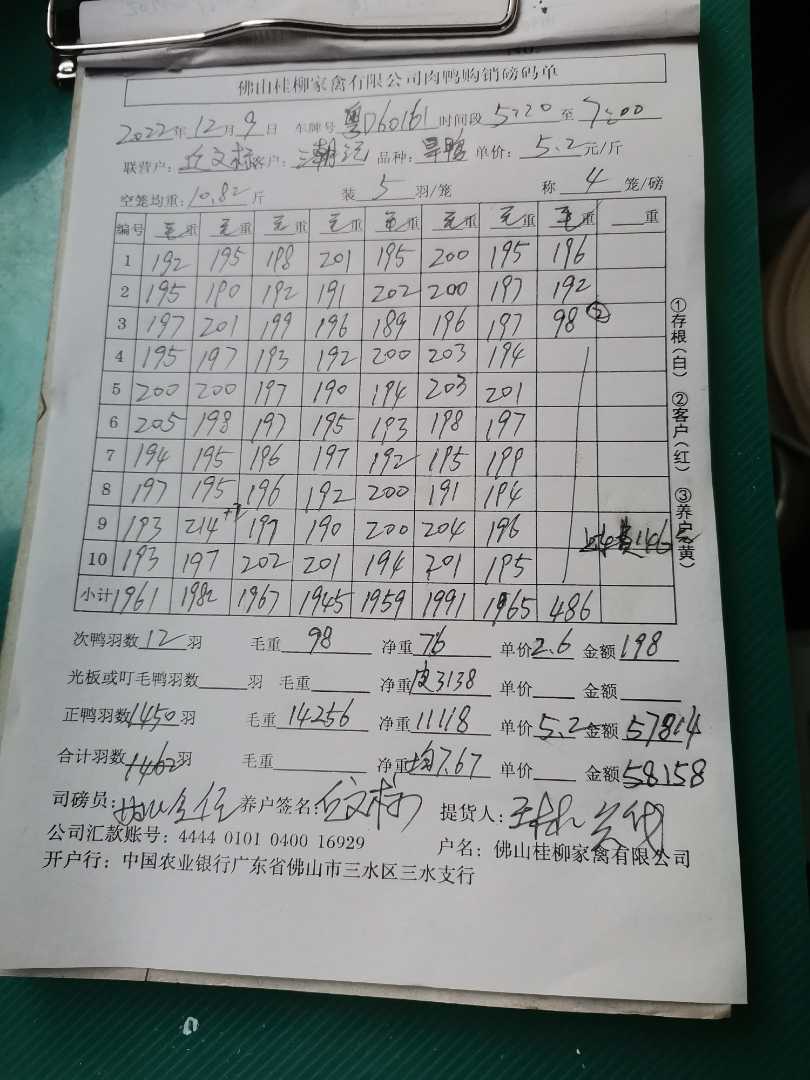 佛山桂柳家禽有限公司肉鸭购销磅码单
2022年12月9日 车牌号 粤D60161 时间段 5:20 至 7:00
联营户: 丘文标 客户: 品种: 单价: 5.2元/斤
空笼均重: 10.82斤 装 5 羽/笼 称 4 笼/磅
编号 毛重 毛重 毛重 毛重 毛重 毛重 毛重 毛重 重
1 192 195 198 201 195 200 195 196
2 195 190 192 191 202 200 197 192
3 197 201 199 196 189 196 197 98 ②
4 195 197 193 192 200 203 194
5 200 200 197 190 194 203 201
6 205 198 197 195 193 198 197
7 194 195 196 197 192 195 199
8 197 195 196 192 200 191 194
9 193 214 197 190 200 204 196
10 193 197 202 201 194 201 195
小计 1961 1982 1967 1945 1959 1991 1965 486
次鸭羽数 12 羽 毛重 98 净重 76 单价 2.6 金额 198
光板或叮毛鸭羽数 羽 毛重 净重 皮3138 单价 金额
正鸭羽数 1450 羽 毛重 14256 净重 11118 单价 5.2 金额 57814
合计羽数 1462 羽 毛重 净重 均7.67 单价 金额 58158
司磅员: 养户签名: 丘文标 提货人:
公司汇款账号: 4444 0101 0400 16929 户名: 佛山桂柳家禽有限公司
开户行: 中国农业银行广东省佛山市三水区三水支行
①存根(白) ②客户(红) ③养户(黄)